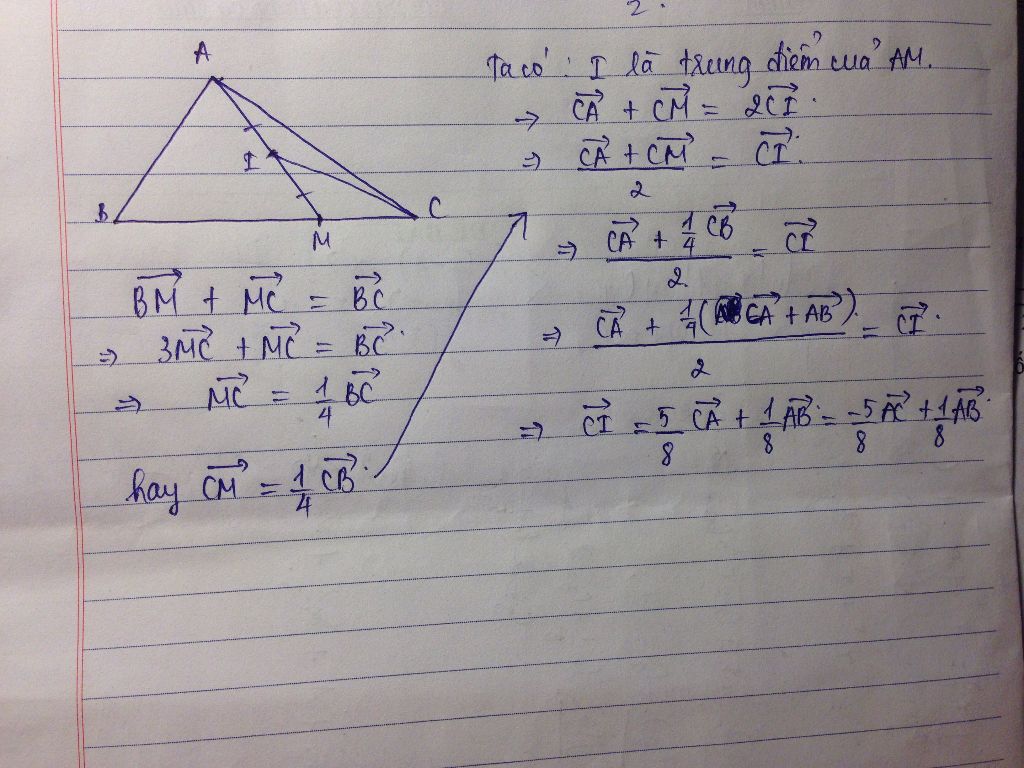 2.
A
I
B
M
C
BM→ + MC→ = BC→
⇒ 3MC→ + MC→ = BC→.
⇒ MC→ = 1/4 BC→
hay CM→ = 1/4 CB→.
Ta có : I là trung điểm của AM.
⇒ CA→ + CM→ = 2CI→.
⇒ (CA→ + CM→)/2 = CI→.
⇒ (CA→ + 1/4 CB→)/2 = CI→
⇒ (CA→ + 1/4(CA→ + AB→))/2 = CI→.
⇒ CI→ = 5/8 CA→ + 1/8 AB→ = -5/8 AC→ + 1/8 AB→.